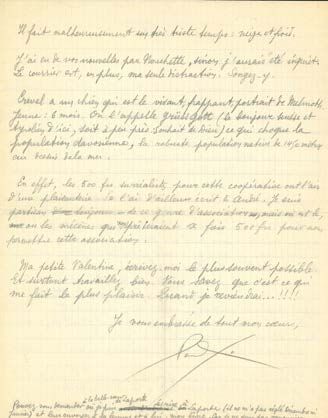 Il fait malheureusement un très triste temps : neige et froid.
J'ai eu de vos nouvelles par Nouchette, sinon j'aurais été inquiet.
Le courrier est, en plus, ma seule distraction. Songez-y.
Crevel a un chien qui est le vivant, frappant, portrait de Melmoth
jeune : 6 mois. On l'appelle Grüssgott (le bonjour suisse et
tyrolien d'ici, soit à peu près Souhait de Dieu) ce qui choque la
population davosienne, la robuste population native de
au dessus de la mer.
En effet, les 500 frs surréalistes pour cette coopérative ont l'air
d'une plaisanterie. Je l'ai d'ailleurs écrit à André. Je suis
partisan de ce genre d'association, mais
ou les mécènes qui prêteraient x fois 500 frs pour
permettre cette association.
Ma petite Valentine, écrivez-moi le plus souvent possible.
Et surtout travaillez bien. Vous savez que c'est ce qui
me fait le plus plaisir. Quand je reviendrai...!!!!
Je vous embrasse de tout mon cœur,
Paul